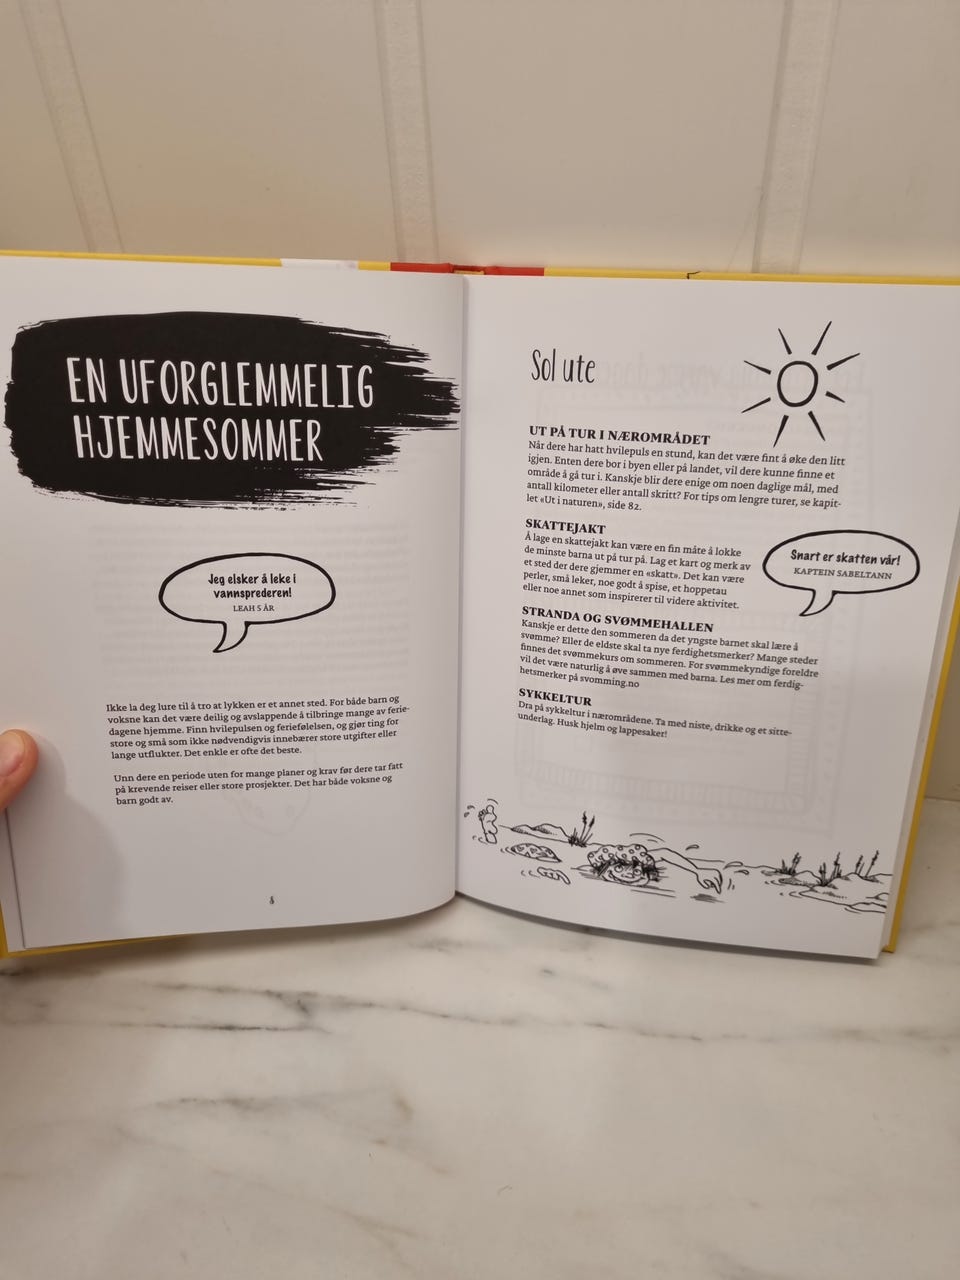 EN UFORGLEMMELIG
HJEMMESOMMER
Jeg elsker å leke i
vannsprederen!
LEAH 5 ÅR
Ikke la deg lure til å tro at lykken er et annet sted. For både barn og
voksne kan det være deilig og avslappende å tilbringe mange av ferie-
dagene hjemme. Finn hvilepulsen og feriefølelsen, og gjør ting for
store og små som ikke nødvendigvis innebærer store utgifter eller
lange utflukter. Det enkle er ofte det beste.
Unn dere en periode uten for mange planer og krav før dere tar fatt
på krevende reiser eller store prosjekter. Det har både voksne og
barn godt av.
8
Sol ute
UT PÅ TUR I NÆROMRÅDET
Når dere har hatt hvilepuls en stund, kan det være fint å øke den litt
igjen. Enten dere bor i byen eller på landet, vil dere kunne finne et
område å gå tur i. Kanskje blir dere enige om noen daglige mål, med
antall kilometer eller antall skritt? For tips om lengre turer, se kapit-
let «Ut i naturen», side 82.
SKATTEJAKT
Å lage en skattejakt kan være en fin måte å lokke
de minste barna ut på tur på. Lag et kart og merk av
et sted der dere gjemmer en «skatt». Det kan være
perler, små leker, noe godt å spise, et hoppetau
eller noe annet som inspirerer til videre aktivitet.
Snart er skatten vår!
KAPTEIN SABELTANN
STRANDA OG SVØMMEHALLEN
Kanskje er dette den sommeren da det yngste barnet skal lære å
svømme? Eller de eldste skal ta nye ferdighetsmerker? Mange steder
finnes det svømmekurs om sommeren. For svømmekyndige foreldre
vil det være naturlig å øve sammen med barna. Les mer om ferdig-
hetsmerker på svomming.no
SYKKELTUR
Dra på sykkeltur i nærområdene. Ta med niste, drikke og et sitte-
underlag. Husk hjelm og lappesaker!